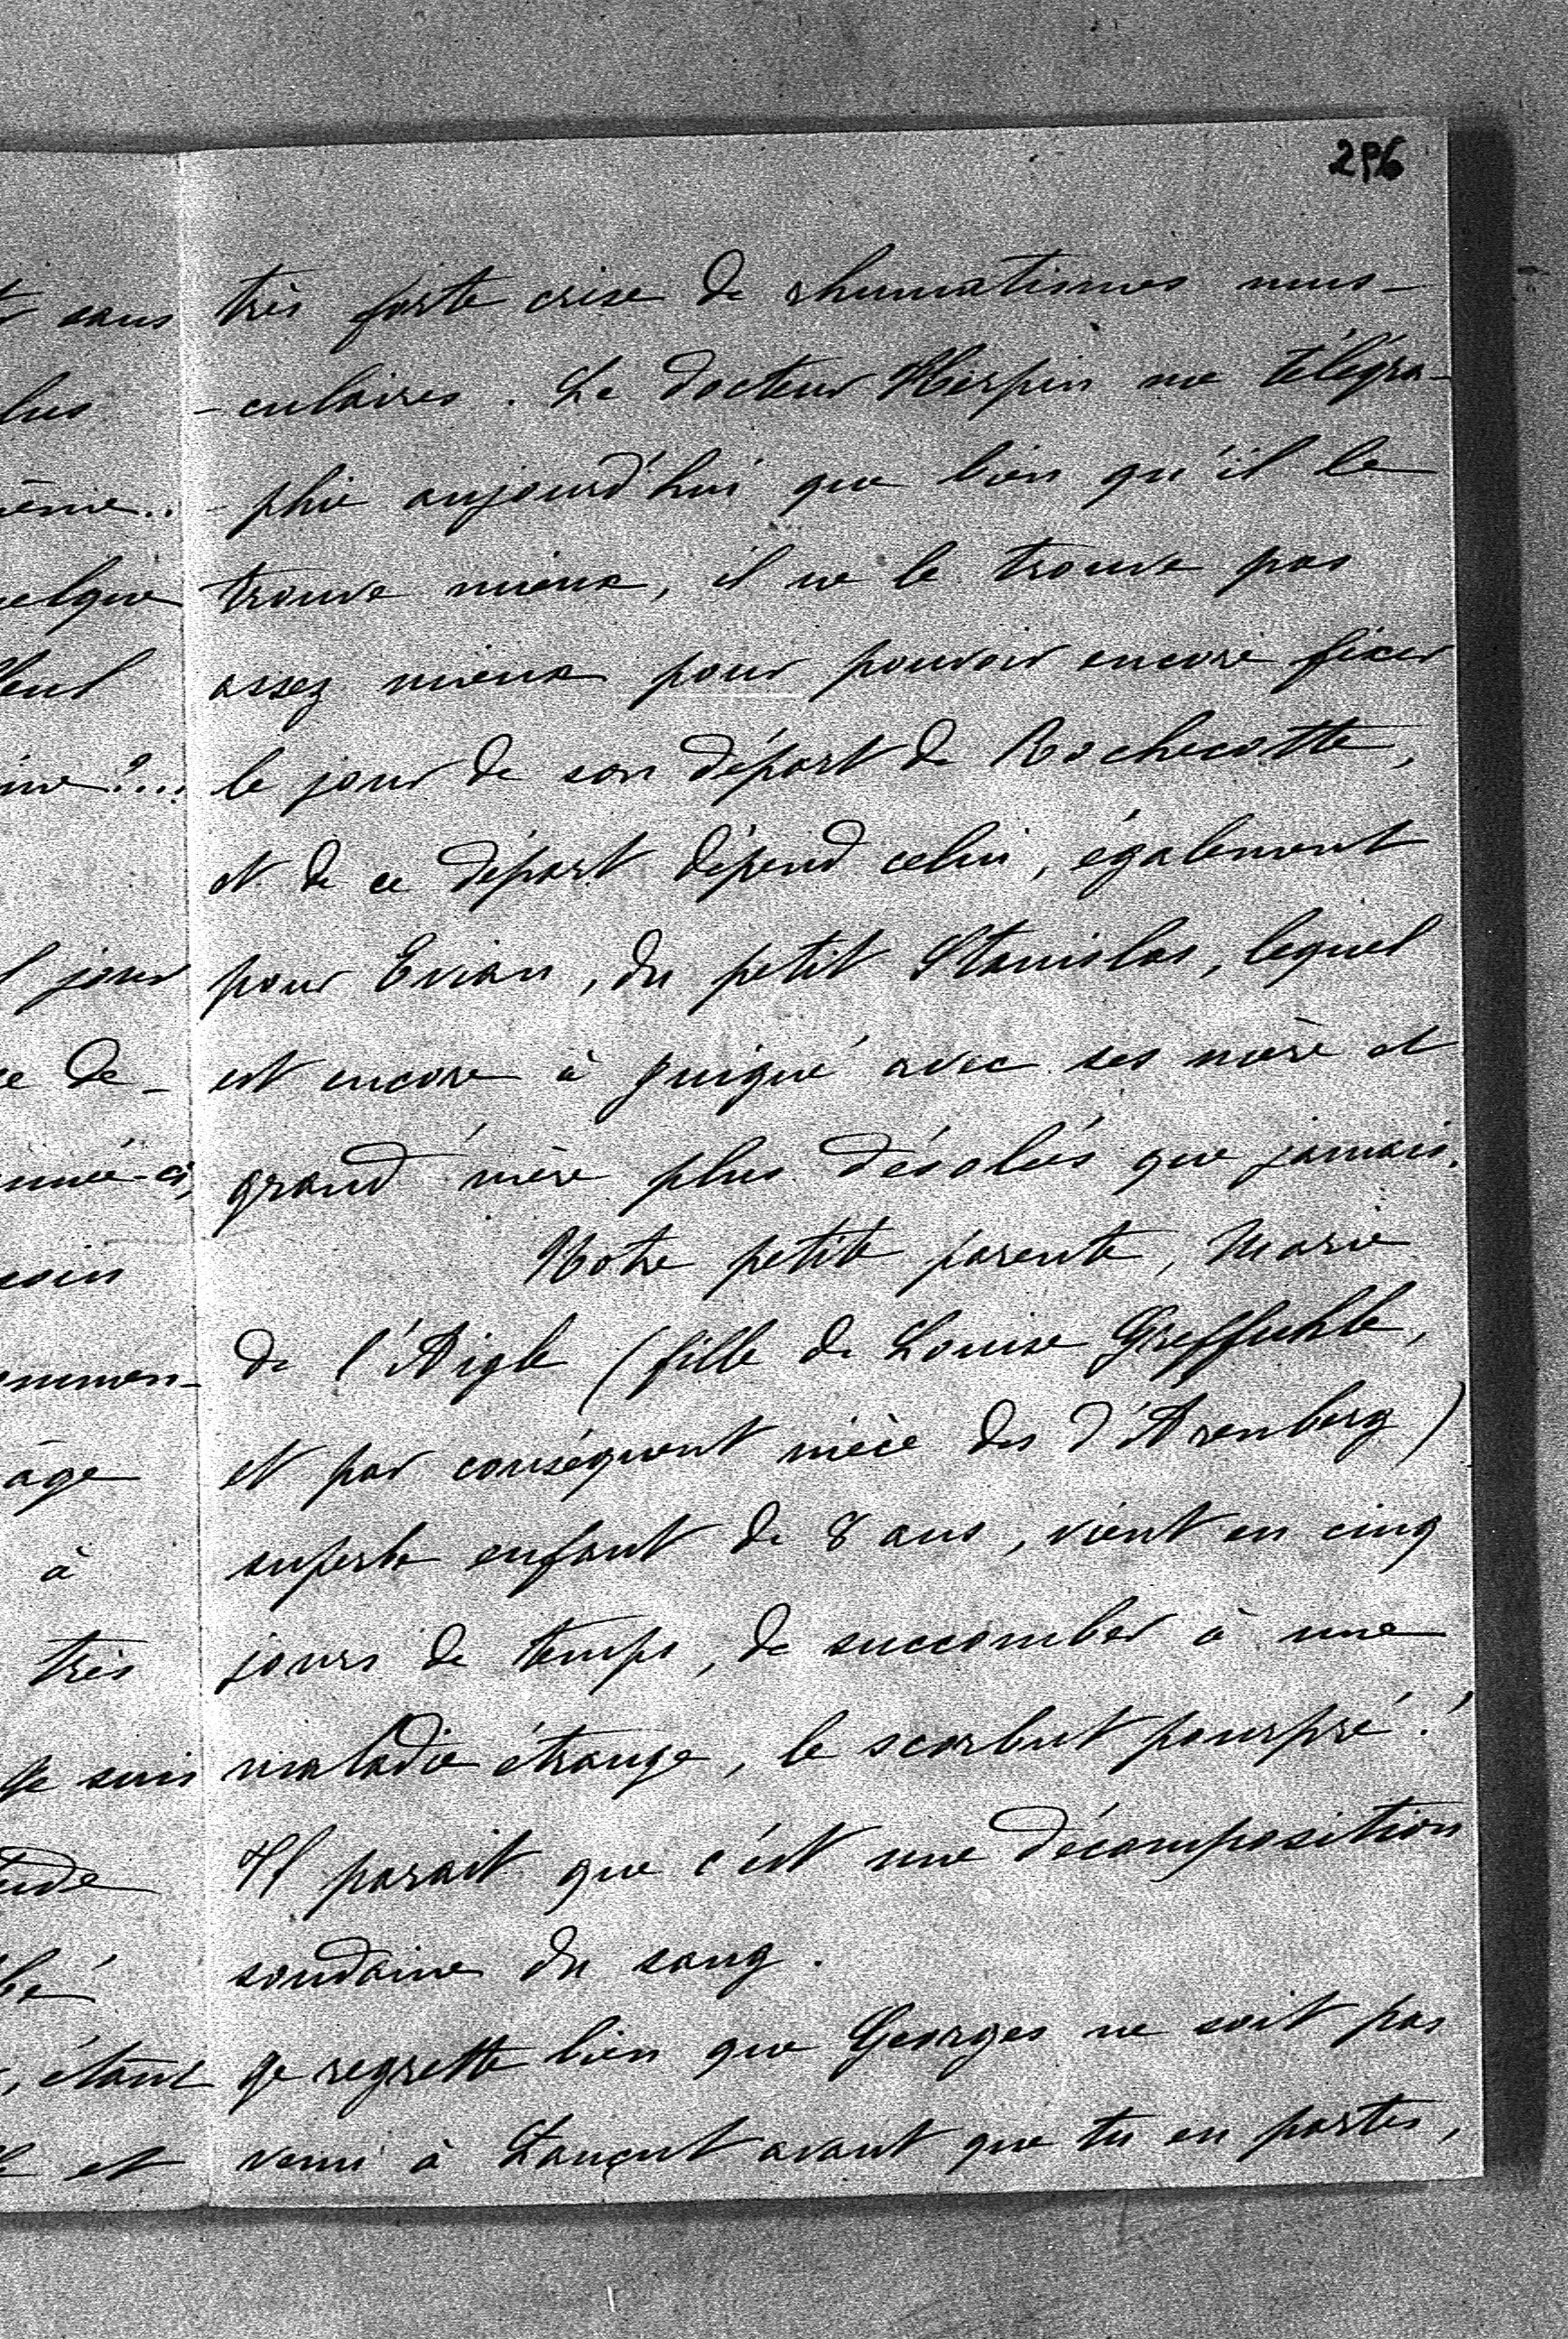 très forte crise de rhumatismes mus-
-culaires. Le docteur Herpin me télégra-
-phie aujourd'hui que bien qu'il le
trouve mieux, il ne le trouve pas
assez mieux pour pouvoir encore fixer
le jour de son départ de Rochecotte,
et de ce départ dépend celui, également
pour Evian, du petit Stanislas, lequel
est encore à Juigné avec ses mère et
grand'mère plus désolées que jamais.
Notre petite parente, Marie
de l'Aigle (fille de Louise Greffuhle,
et par conséquent nièce des d'Arenberg)
superbe enfant de 8 ans, vient en cinq
jours de temps, de succomber à une
maladie étrange, le scorbut pourpré!
Il parait que c'est une décomposition
soudaine du sang.
Je regrette bien que Georges ne soit pas
venu à Lançut avant que tu en partes,
sans
jour
de-
âge
à
très
Je suis
étant
et